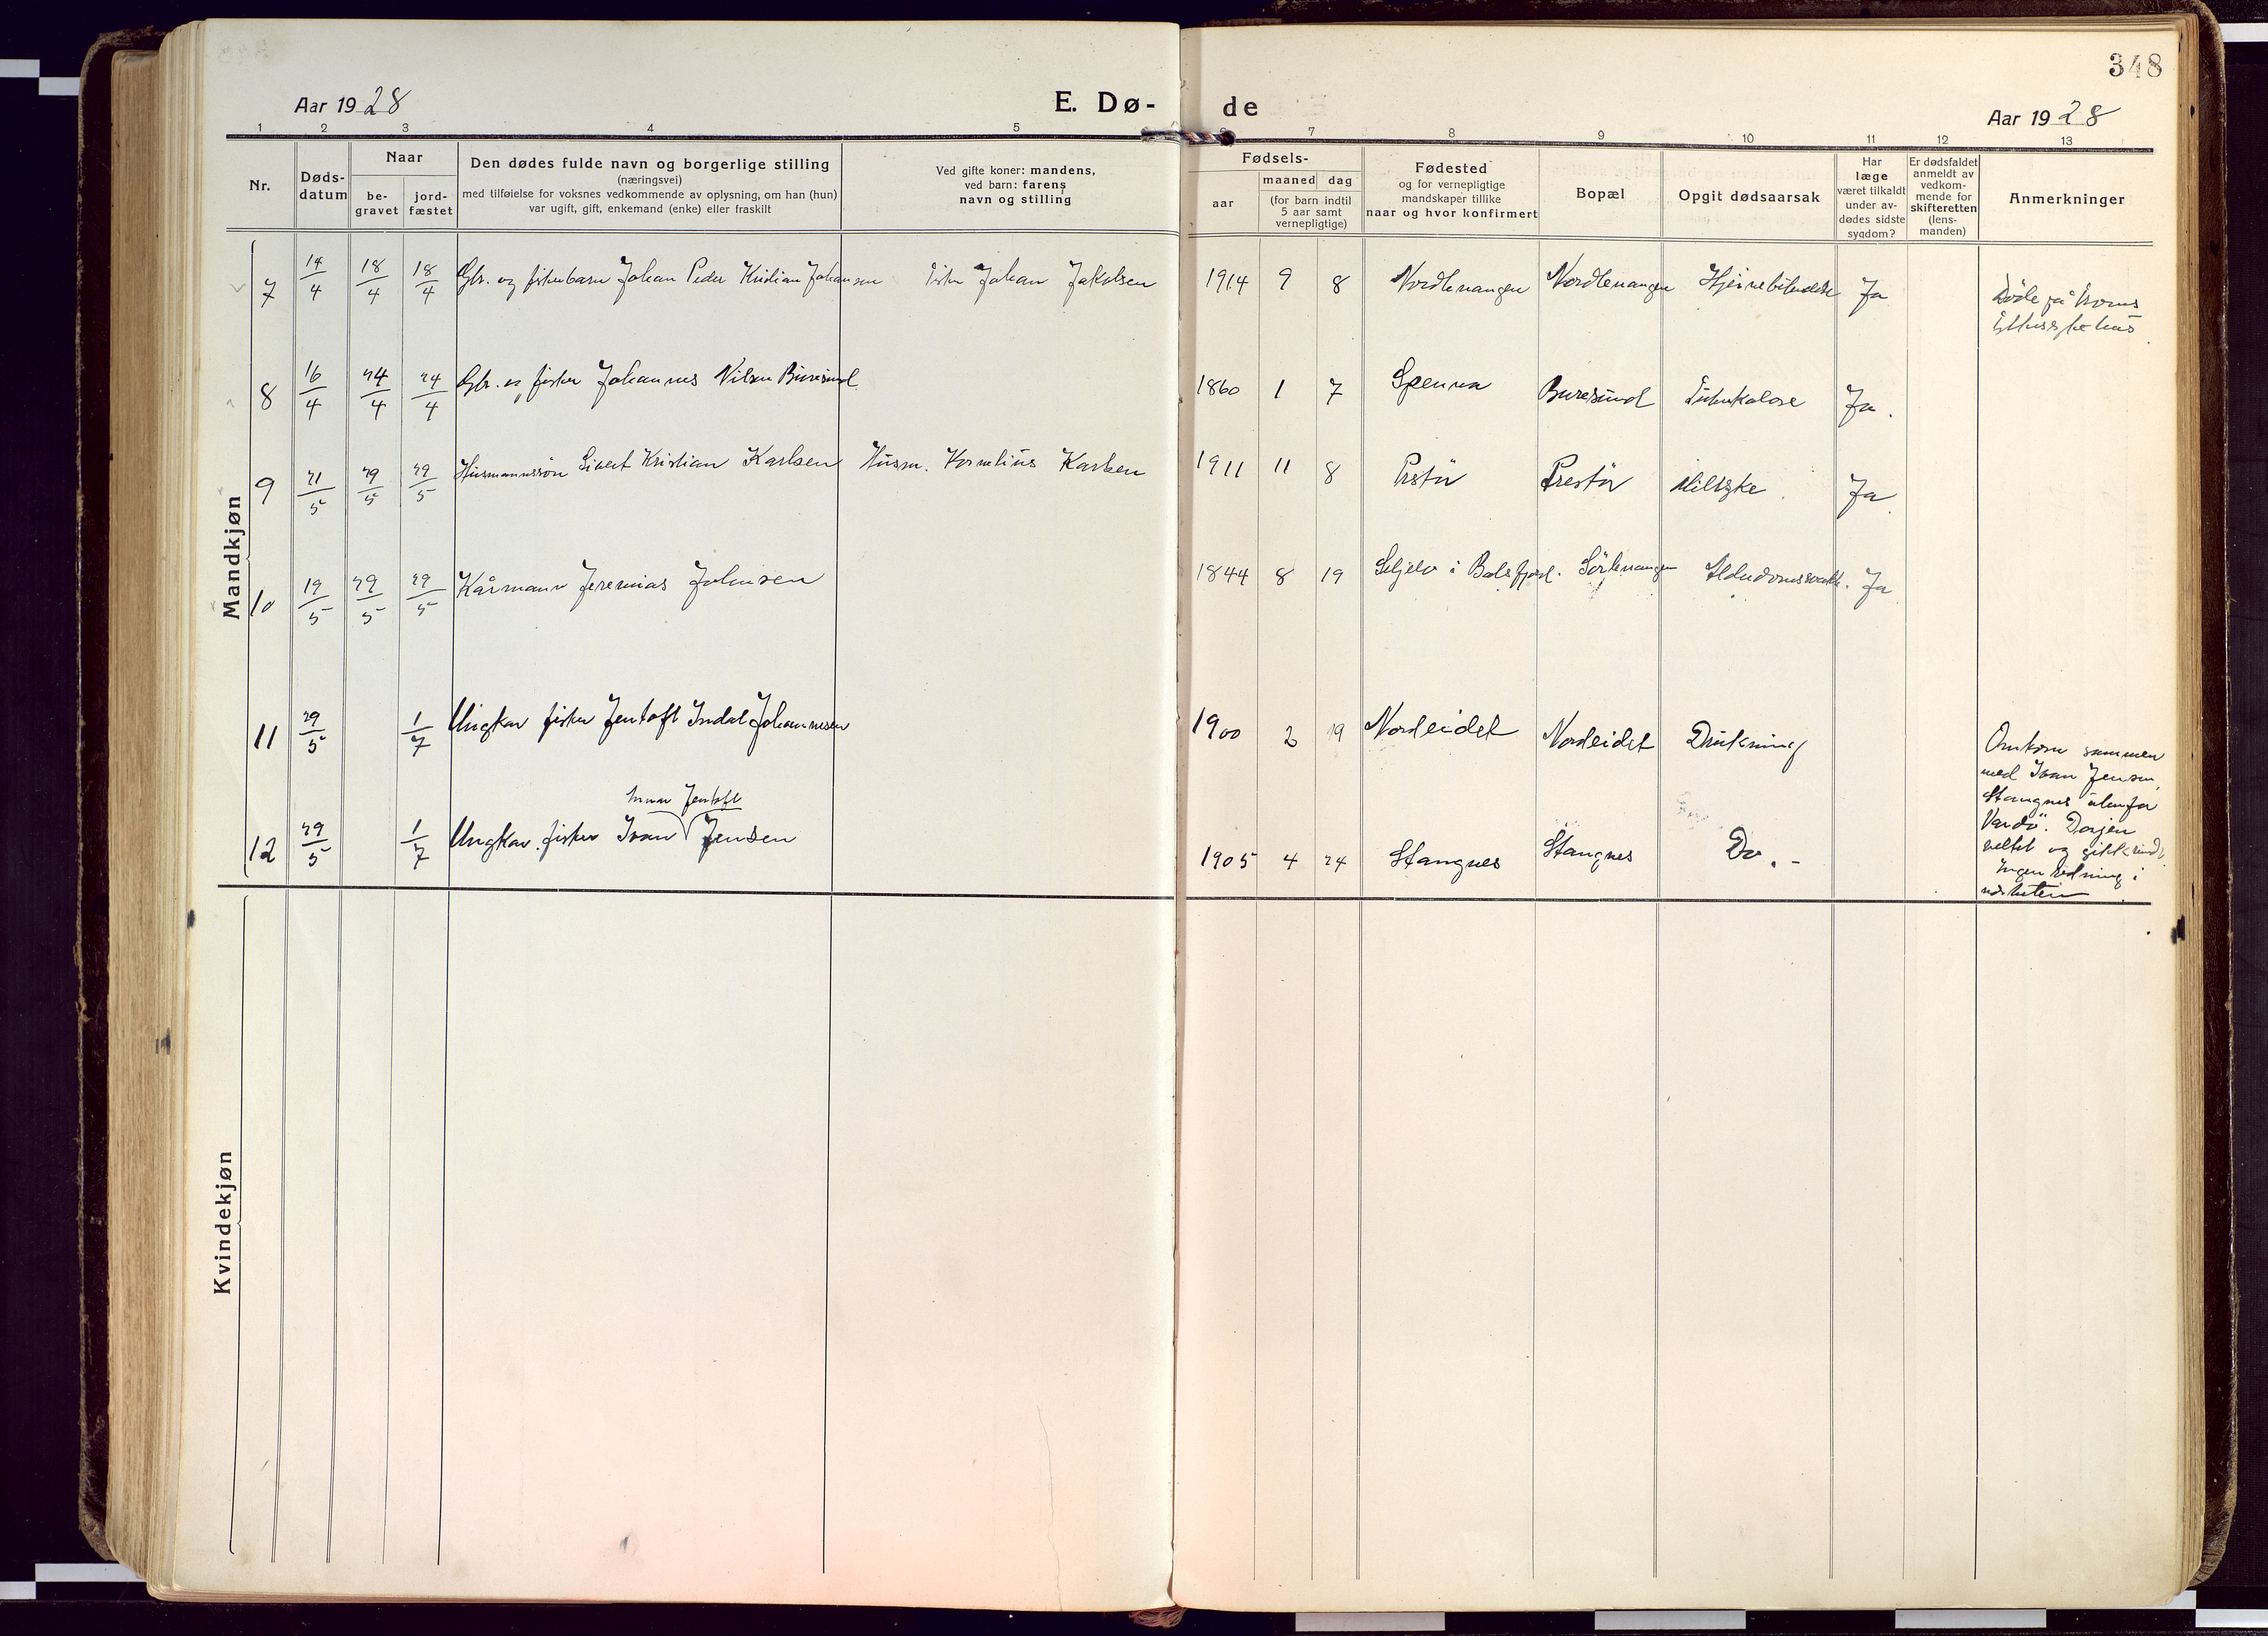 348
Aar 1928
E. Dø-
de
Aar 1928
1 2 3 4 5 7 8 9 10 11 12 13
Nr.
Døds-
datum
Naar
be-
gravet
jord-
fæstet
Den dødes fulde navn og borgerlige stilling
(næringsvei)
med tilføielse for voksnes vedkommende av oplysning, om han (hun)
var ugift, gift, enkemand (enke) eller fraskilt
Ved gifte koner: mandens,
ved barn: farens
navn og stilling
Fødsels-
aar
maaned dag
(for barn indtil
5 aar samt
vernepligtige)
Fødested
og for vernepligtige
mandskaper tillike
naar og hvor konfirmert
Bopæl
Opgit dødsaarsak
Har
læge
været tilkaldt
under av-
dødes sidste
sygdom?
Er dødsfaldet
anmeldt av
vedkom-
mende for
skifteretten
(lens-
manden)
Anmerkninger
Mandkjøn
7 14/4 18/4 18/4 Gbr. og fiskerbarn Johan Peder Kristian Johansen Johan Jakobsen 1914 9 8 Nordlenangen Nordlenangen Ja
Döde på
8 16/4 24/4 24/4 Gbr. og fisker Johannes Nilsen Buresund 1860 1 7 Spenna Buresund Ja.
9 21/5 29/5 29/5 Husmannssön Sivert Kristian Karlsen Husm. Kornelius Karlsen 1911 11 8 Prestör Ja
10 19/5 29/5 29/5 Kårmann Jeremias Johnsen 1844 8 19 Seljelv i Balsfjord. Sörlenangen Ja
11 29/5 1/7 Ungkar fisker Jentoft Indal Johannesen 1900 2 19 Nordeidet Nordeidet Drukning
Omkom sammen
med Ivan Jensen,
Stangnes utenfor
Vardö. Dorjen
veltet og gikk rundt
Ingen redning i
nærheten
Jentoft
12 29/5 1/7 Ungkar. fisker Ivan Jensen 1905 4 24 Stangnes Stangnes Do. -
Kvindekjøn